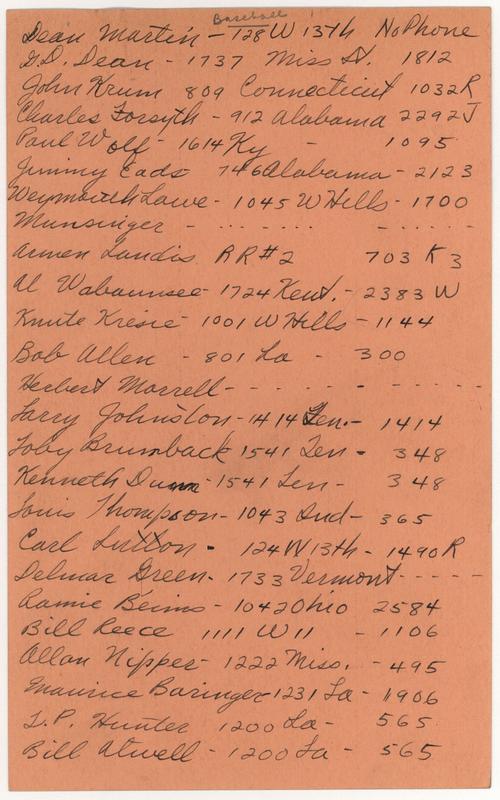 Baseball
Dean Martin - 128 W 13th No Phone
G.D. Dean - 1737 Miss St. 1812
John Krum 809 Connecticut 1032R
Charles Forsyth - 912 Alabama 2292J
Paul Wolf - 1614 Ky - 1095
Jimmy Eads 746 Alabama - 2123
Weymouth Lowe - 1045 W Hills - 1700
Munsinger - - - - - - - - - - -
Armen Landis RR#2 703 K 3
Al Wabaunsee - 1724 Kent. - 2383 W
Knute Kresie - 1001 W Hills - 1144
Bob Allen - 801 La - 300
Herbert Morrell - - - - - - - - - - -
Larry Johnston - 1414 Ten. - 1414
Toby Brumback 1541 Ten - 348
Kenneth Dunn - 1541 Ten - 348
Louis Thompson - 1043 Ind - 365
Carl Sutton - 124 W 13th - 1490R
Delmar Green - 1733 Vermont - - - - -
Ramie Beims - 1042 Ohio 2584
Bill Reece 1111 W 11 - 1106
Allan Nipper - 1222 Miss. - 495
Maurice Baringer 1231 La - 1906
L.P. Hunter 1200 La - 565
Bill Atwell - 1200 La - 565